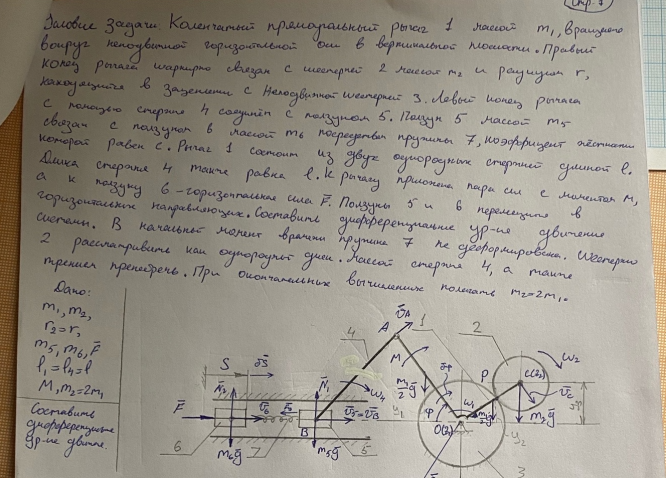 Условие задачи. Коленчатый прямоугольный рычаг 1 массой m₁, вращается
вокруг неподвижной горизонтальной оси в вертикальной плоскости. Правый
конец рычага шарнирно связан с шестерней 2 массой m₂ и радиусом r,
находящейся в зацеплении с неподвижной шестерней 3. Левый конец рычага
с помощью стержня 4 соединён с ползуном 5. Ползун 5 массой m₅
связан с ползуном 6 массой m₆ посредством пружины 7, коэффициент жёсткости
которой равен c. Рычаг 1 состоит из двух однородных стержней длиной l.
Длина стержня 4 также равна l. К рычагу приложена пара сил с моментом M,
а к ползуну 6 - горизонтальная сила F̅. Ползуны 5 и 6 перемещаются в
горизонтальных направляющих. Составить дифференциальные ур-ие движения
системы. В начальный момент времени пружина 7 не деформирована. Шестерню
2 рассматривать как однородный диск. Массой стержня 4, а также
трением пренебречь. При окончательных вычислениях полагать m₂=2m₁.
Дано:
m₁, m₂,
r₂=r,
m₅, m₆, F̅
l₁=l₄=l
M, m₂=2m₁
Составить
дифференциальные
ур-ие движ.
A V̅A 1 2
4 M ω₂
S δS m₁/2 g̅ δφ P C(2₂)
N̅₁ ω₄ φ ω₁ V̅c
F̅ V̅₆ V̅₅=V̅B y₁ m₂g̅
B O(2₁) y₂
6 m₆g̅ 7 m₅g̅ 5 3